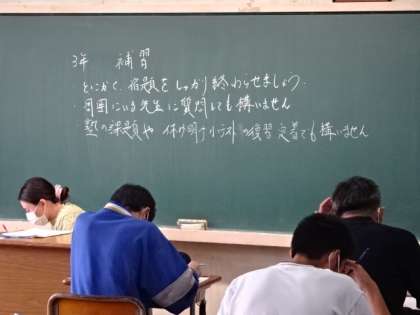 3年 補習
とにかく、宿題をしっかり終わらせましょう.
・周囲にいる先生に質問しても構いません
塾の課題や 休み明け小テストの復習定着でも構いません